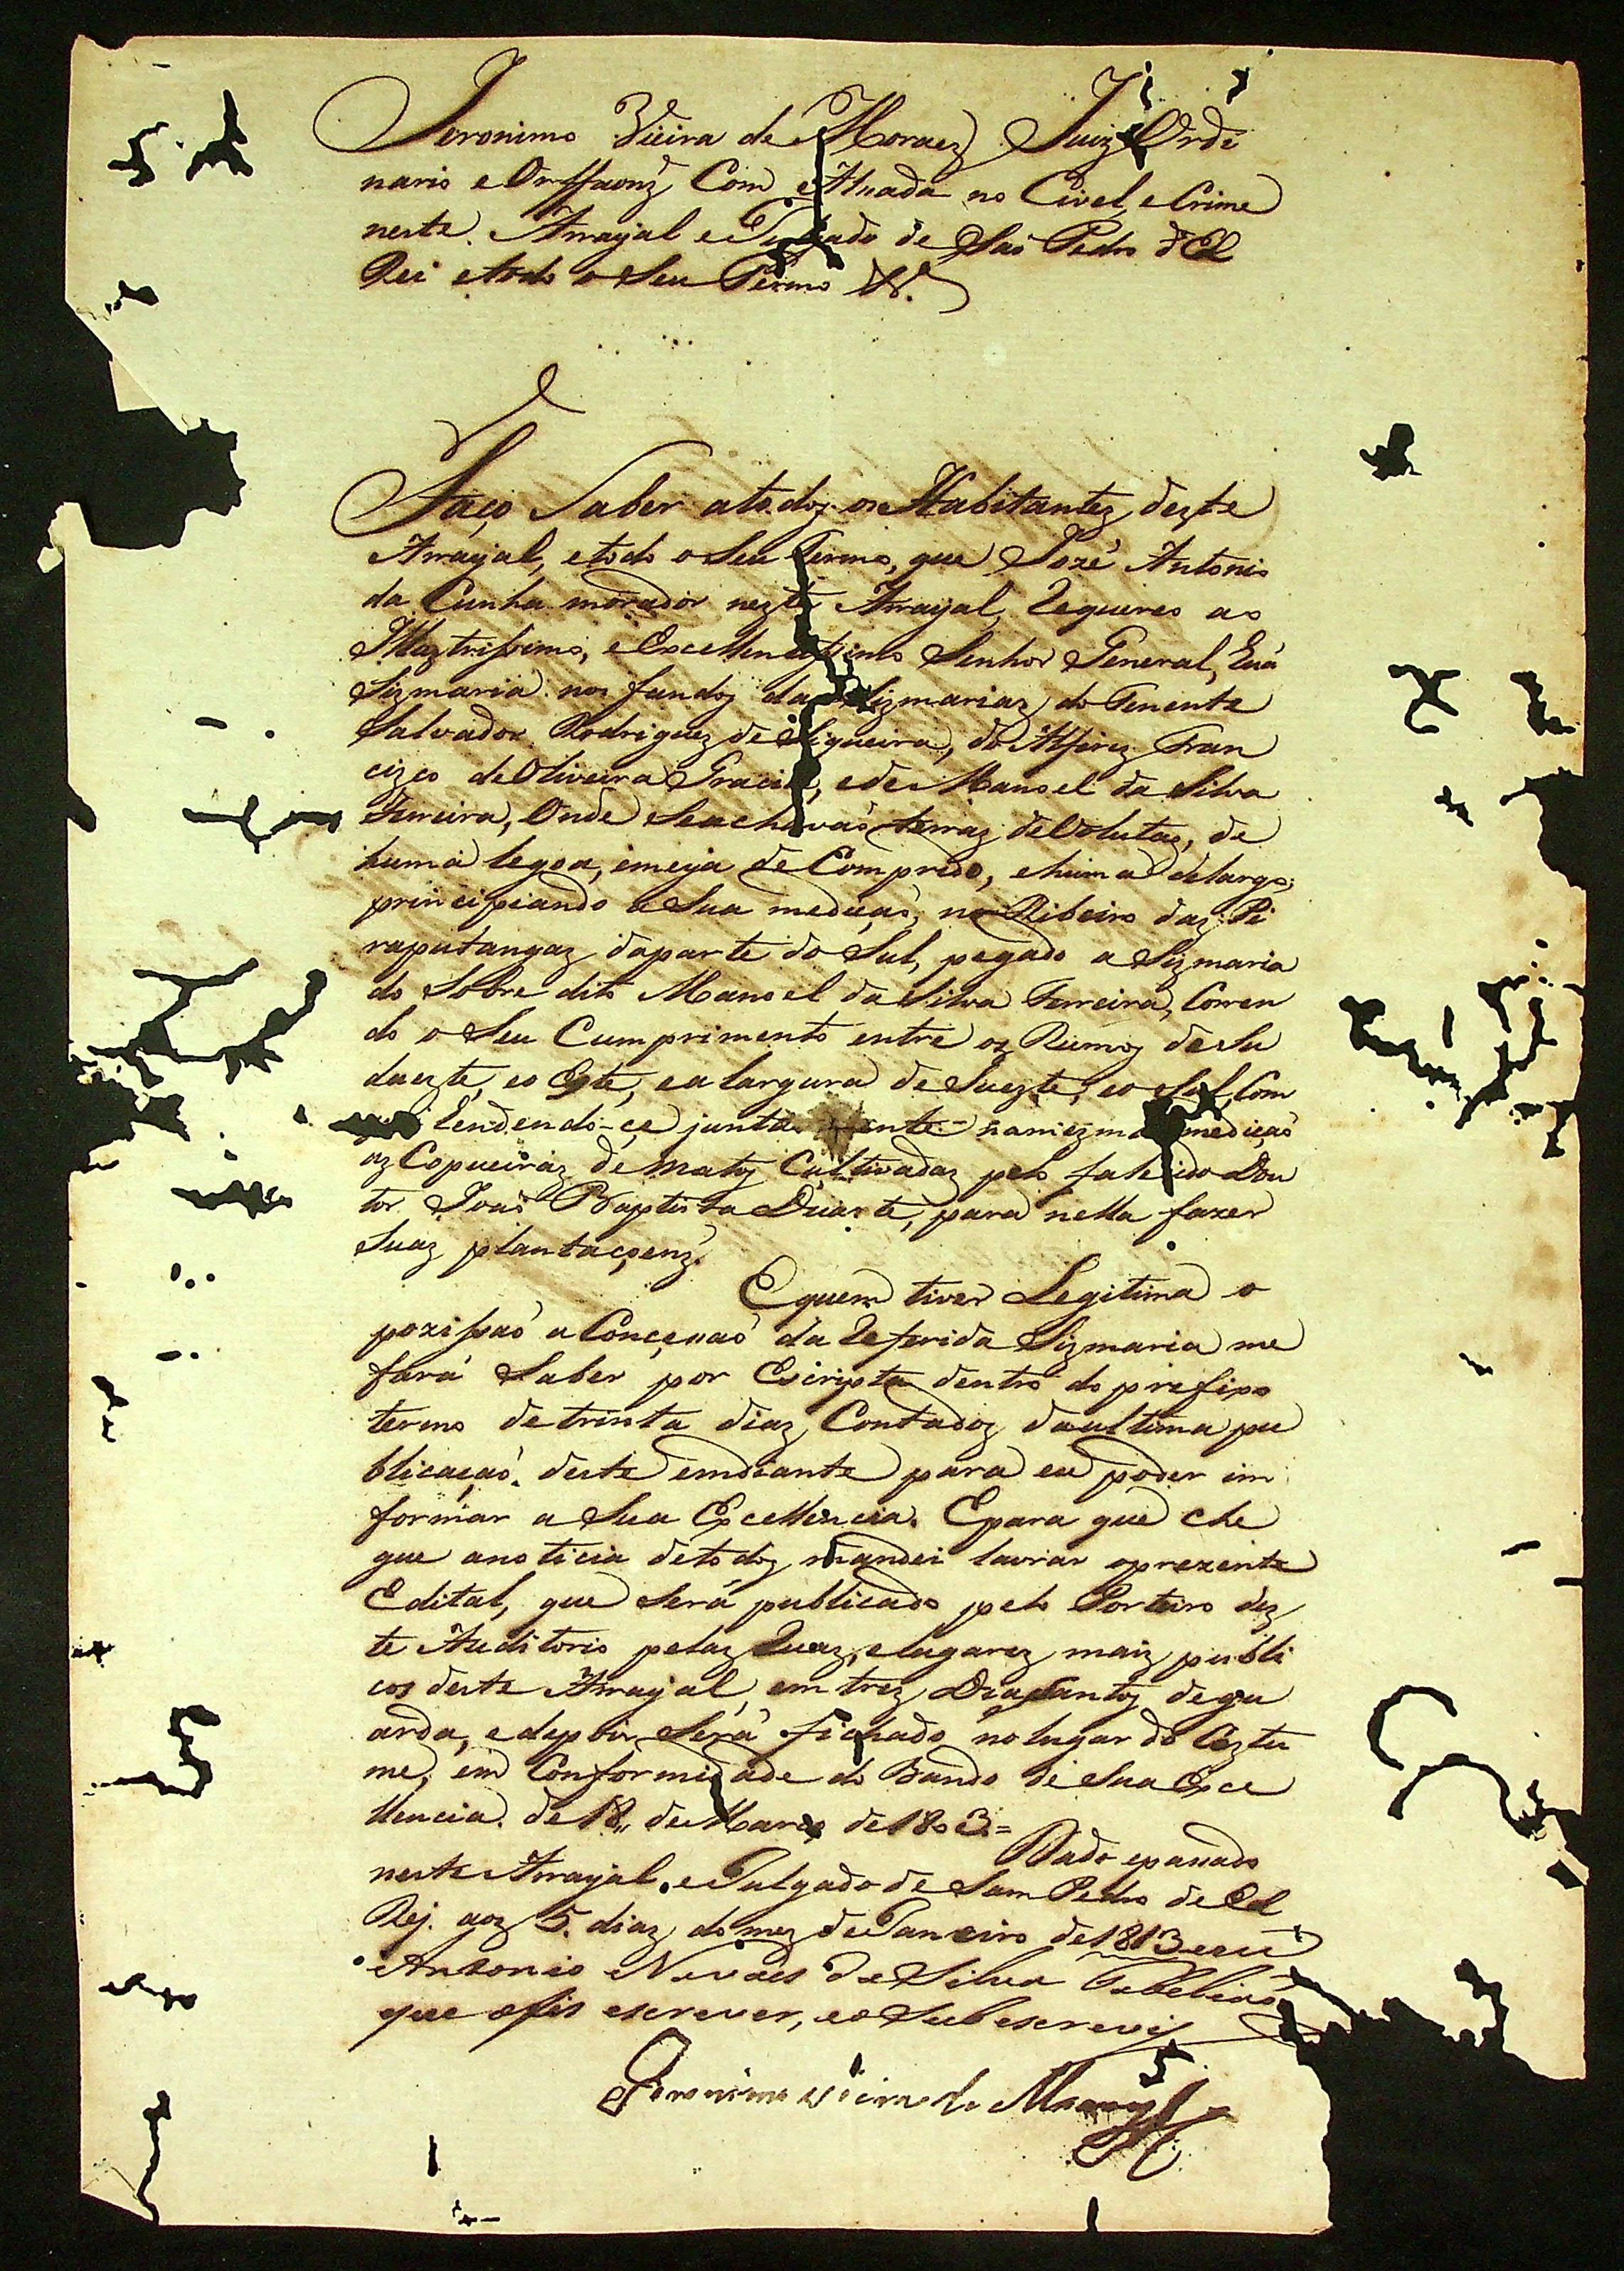 Jeronimo Vieira de Moraez Juiz Ordi
nario e Orffaonz Com Alsada no Civel, e Crime
neste Arrayal e Julgado de Saó Pedro d'El
Rei e todo o Seu Termo &c.
Faço Saber atodoz os Habitantez dezte
Arrayal, etodo o Seu Termo, que Jozé Antonio
da Cunha morador nezte Arrayal, Requereo ao
Illuztrissimo, e Excellentissimo Senhor General, huá
Sizmaria nos fundoz das Sizmariaz do Tenente
Salvador Rodriguez de Siqueira, do Alferez Fran
cizco de Oliveira Gracia, e de Manoel da Silva
Ferreira, Onde Seachavaó terraz deVolutas, de
huma legoa, emeya de Comprido, ehuma delargo;
principiando a Sua mediçaó, no Ribeiro daz Pi
raputangaz daparte do Sul, pegado a Sizmaria
do Sobre dito Manoel da Silva Ferreira, Corren
do o Seu Cumprimento entre oz Rumoz de Su
duezte, eo Ezte, ea largura de Suezte, eo Sul, Com
endendo-ce junta mente namezma mediçaó
az Capueiraz de Matoz Cultivadaz pelo falecido Dou
tor Joaó Baptista Duarte, para nella fazer
Suaz plantaçoenz.
Equem tiver Legitima o
pozissaó a Conceçaó da Referida Sizmaria me
fará Saber por Escripta dentro do prefixo
termo detrinta diaz Contadoz daultima pu
blicaçaó deste emdiante para eu poder im
formar a Sua Excellencia. Epara que che
gue anoticia detodoz mandei lavrar oprezente
Edital, que Será publicado pelo Porteiro dez
te Auditorio pelaz Ruaz, elugarez maiz publi
cos deste Arrayal, em trez Diaz Santoz degu
arda, edepois Será fichado nolugar do Coztu
me, em Conformidade do Bando de Sua Exce
llencia de 18,, de Março de 1803.=
Dado epassado
neste Arrayal, e Julgado de Sam Pedro de El
Rej. aoz 5. diaz do mez de Janeiro de 1813 e eu
Antonio Novaes da Silva Tabeliaó
que ofis escrever, eo Subescrevi
Jeronimo Vieira de Moraez